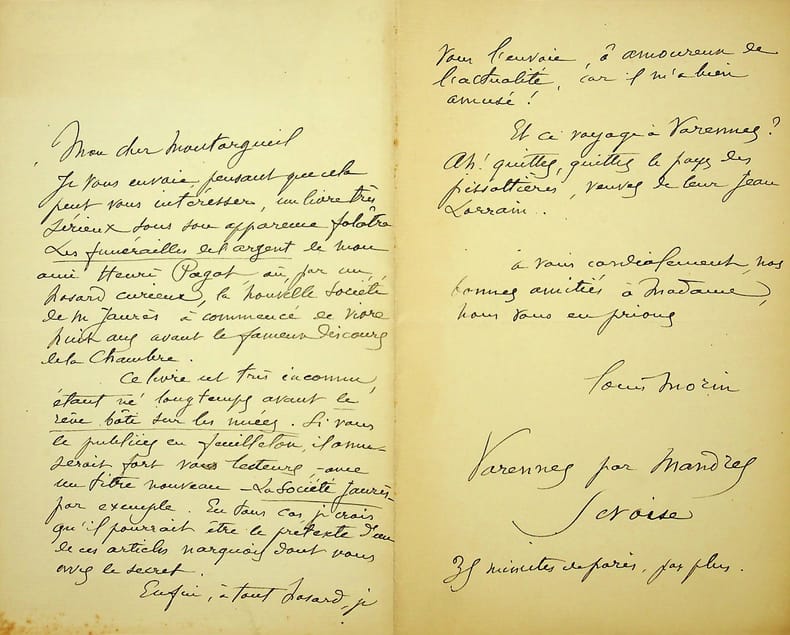 Mon cher Montorgueil
Je vous envoie, pensant que cela
peut vous intéresser, un livre très
sérieux sous son apparence folâtre
Les funérailles de l'argent de mon
ami Henri Pagat, où par un
hasard curieux, la nouvelle Société
de M Jaurès à commencé de vivre
huit ans avant le fameux discours
de la Chambre.
Ce livre est très inconnu,
étant né longtemps avant le
rêve bâti sur les nuées. Si vous
le publiiez en feuilleton, il amu-
serait fort vos lecteurs - avec
un titre nouveau - La Société Jaurès
par exemple. En tous cas, je crois
qu'il pourrait être le prétexte d'un
de ces articles narquois dont vous
avez le secret.
Enfin, à tout hasard, je
vous l'envoie, ô amoureux de
l'actualité, car il m'a bien
amusé!
Et ce voyage à Varennes?
Ah! quittez, quittez le pays des
pissottières, veuves de leur Jean
Lorrain..
à vous cordialement, nos
bonnes amitiés à Madame,
nous vous en prions
Louis Morin
Varennes par Mandres
S et Oise
35 minutes de paris, pas plus.